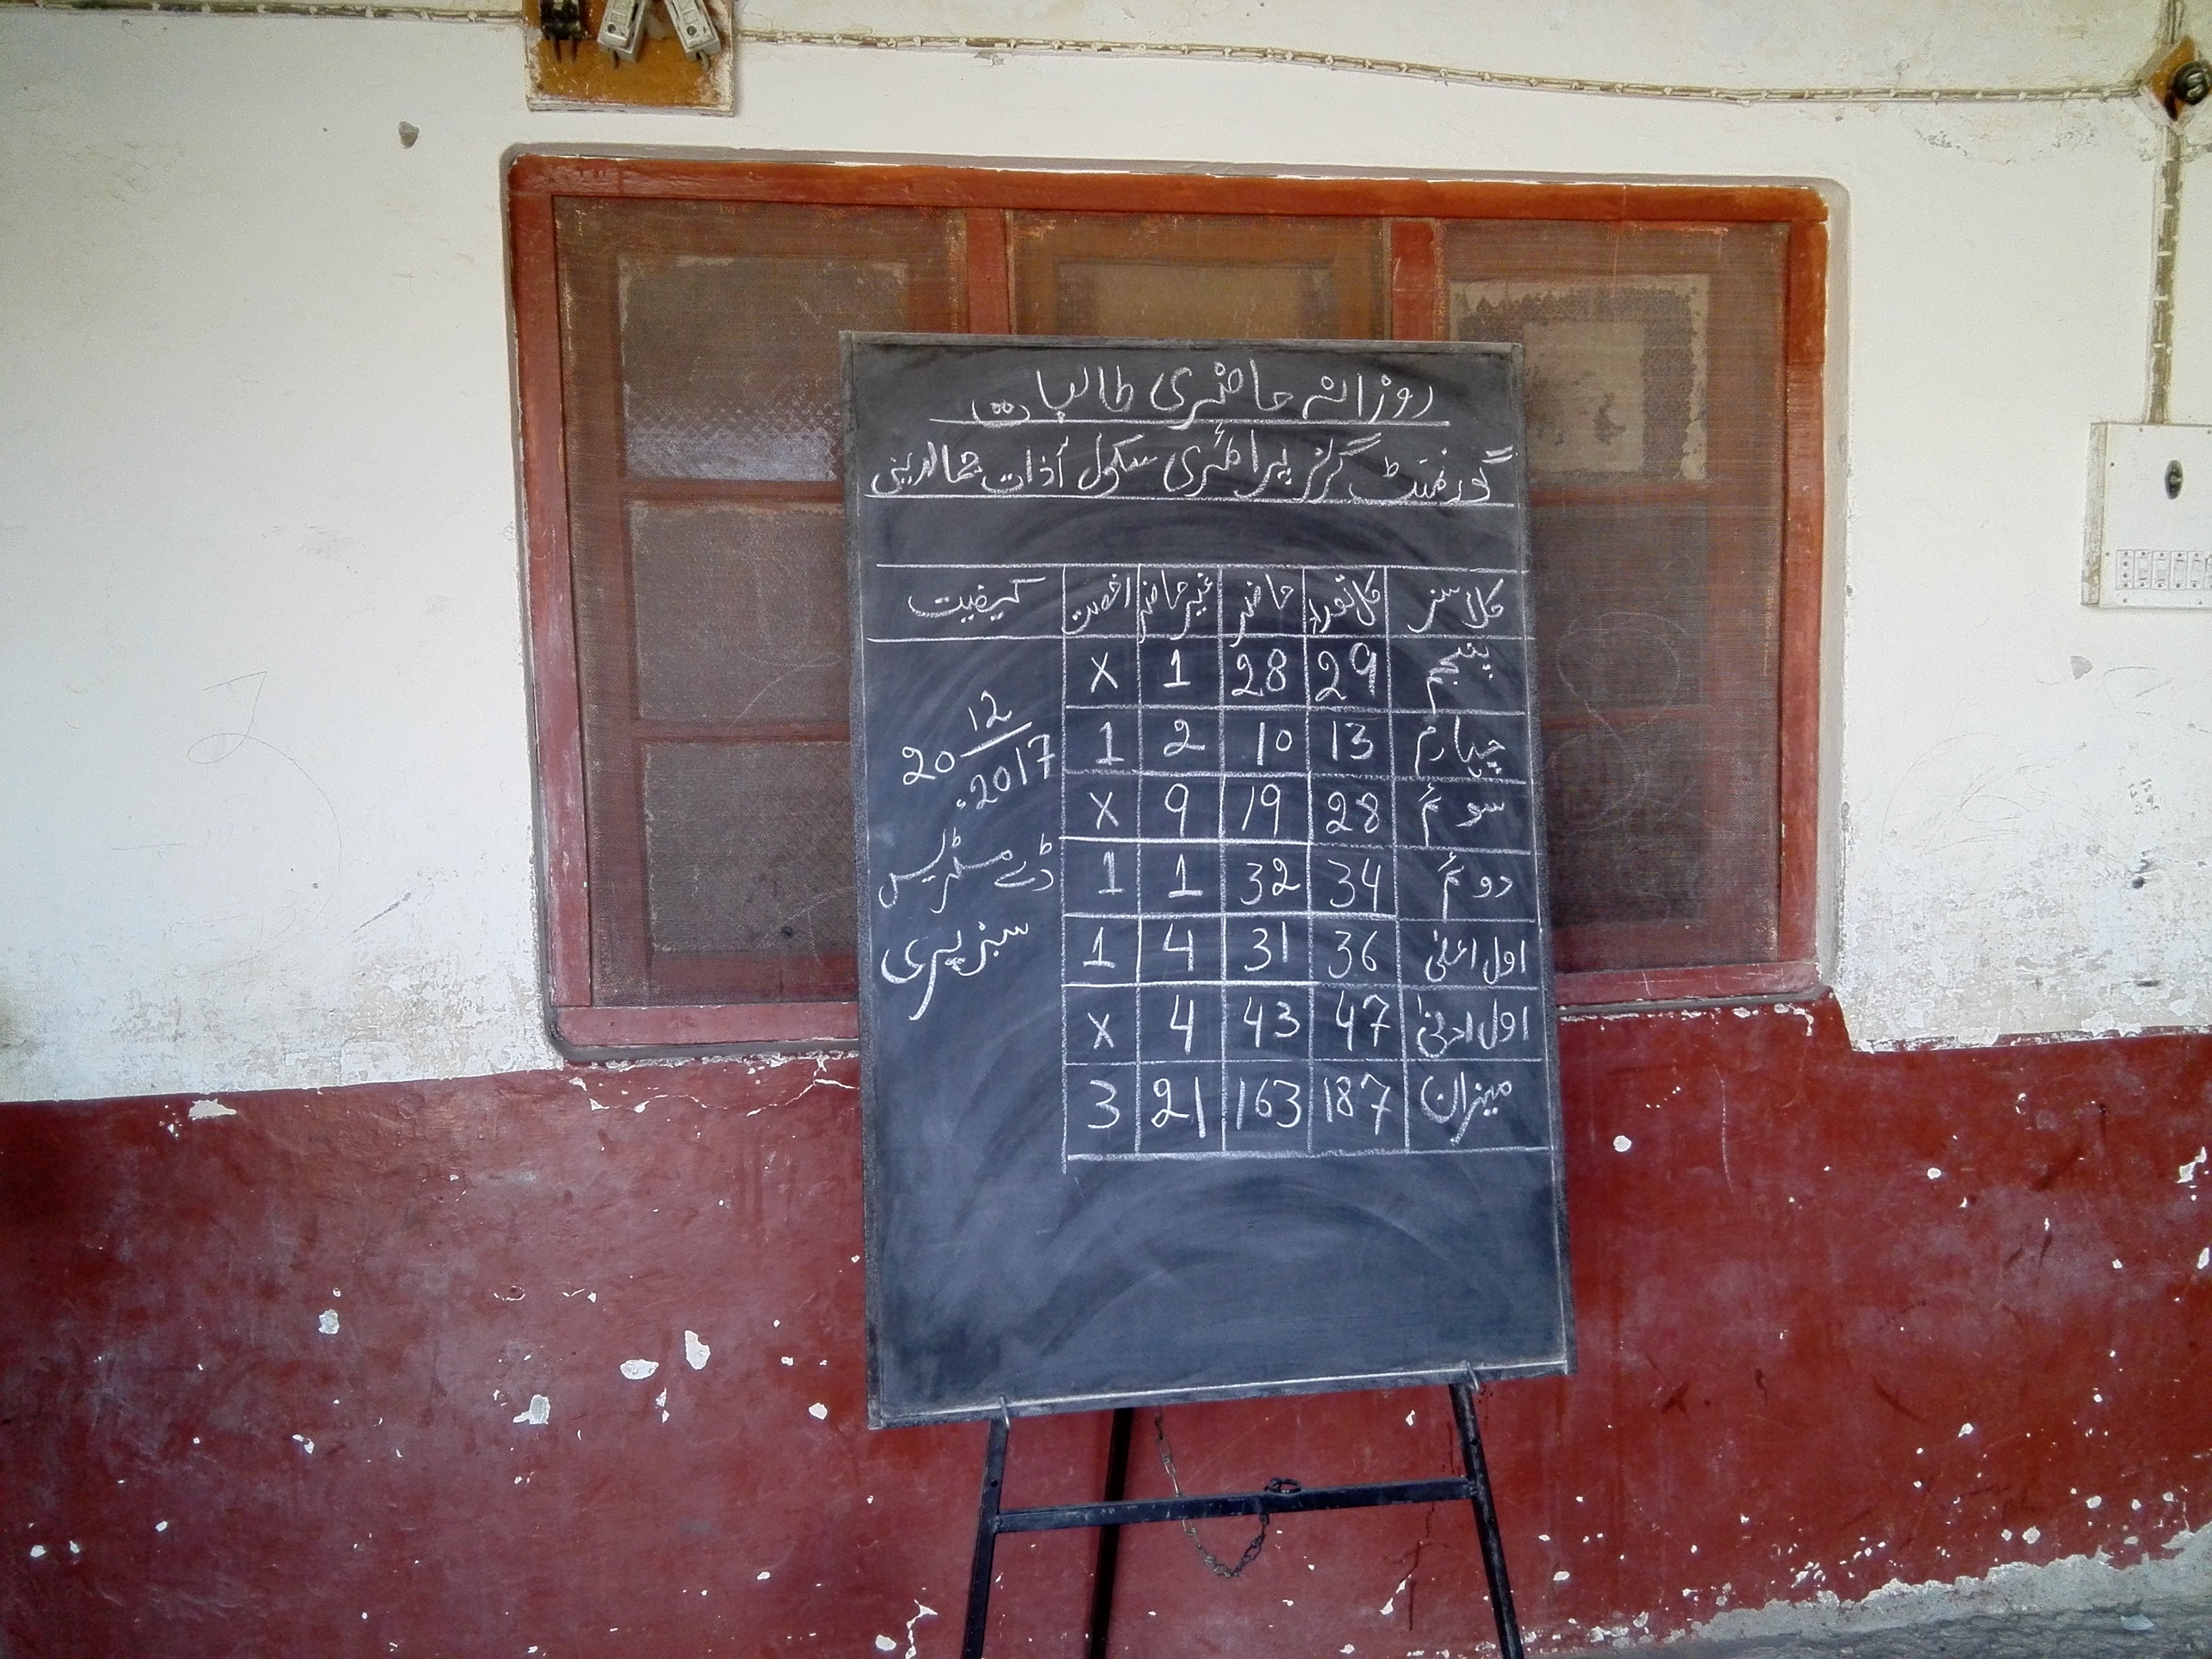 روزانہ حاضری طالبات
گورنمنٹ گرلز پرائمری سکول
کلاسز کل تعداد حاضر غیر حاضر رخصت کیفیت
پنجم 29 28 1 x
چہارم 13 10 2 1
سوئم 28 19 9 x
دوئم 34 32 1 1
اول اعلیٰ 36 31 4 1
اول ادنیٰ 47 43 4 x
میزان 187 163 21 3
20 12
2017
ڈے مسٹریس
سبز پری